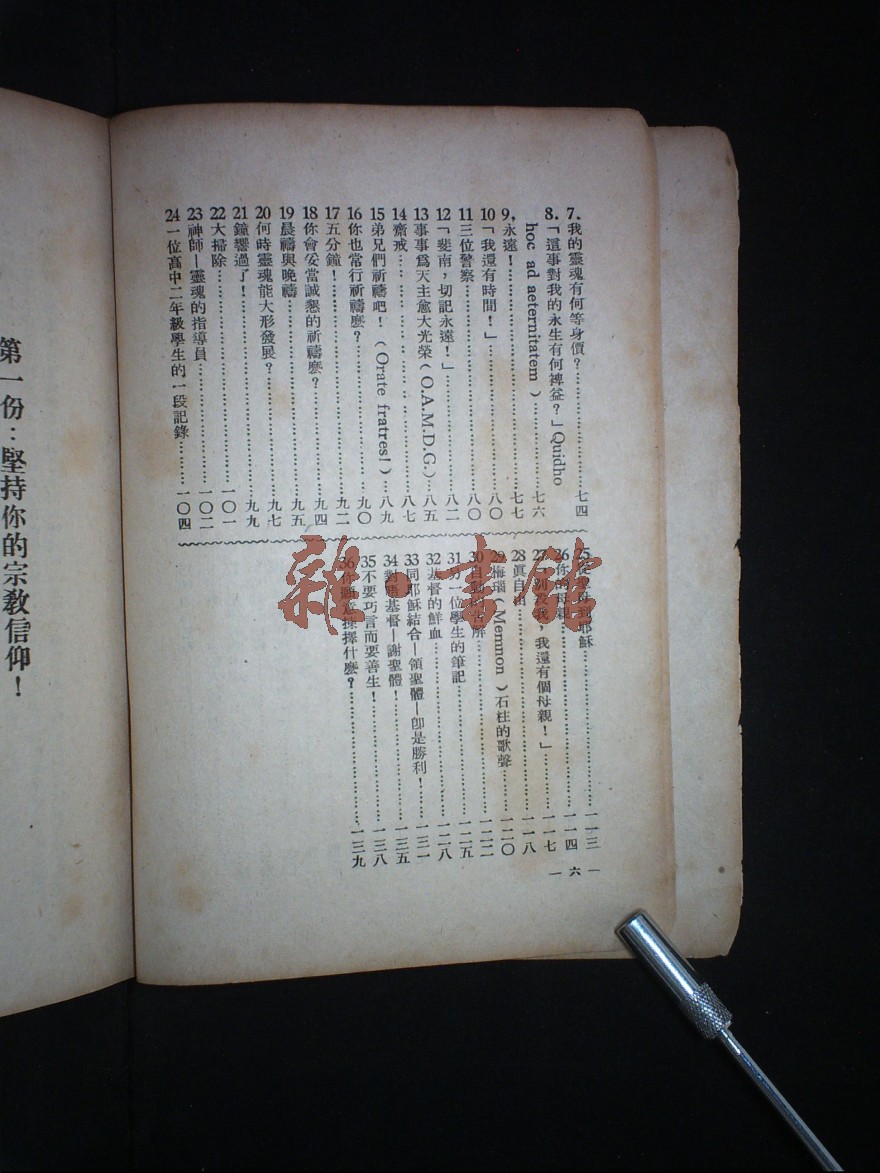 7．我的靈魂有何等身價？……七四
8．「這事對我的永生有何裨益？」Quidho
hoc ad aeternitatem）……七六
9，永遠！……七七
10「我還有時間！」……八〇
11三位警察……八〇
12「斐南，切記永遠！」……八二
13事事爲天主愈大光榮（O.A.M.D.G.）…八五
14齋戒……八七
15弟兄們祈禱吧！（Orate fratres!）…八九
16你也常行祈禱麽？……九〇
17五分鐘！……九二
18你會妥當誠懇的祈禱麽？……九四
19晨禱與晚禱……九五
20何時靈魂能大形發展？……九七
21鐘響過了！……九九
22大掃除……一〇一
23神師—靈魂的指導員……一〇二
24一位高中二年級學生的一段記錄……一〇四
25從聖母到耶穌……一一三
26你的母親……一一四
27，我還有個母親！」……一一七
28眞自由……一一八
29梅瑙（Memnon）石柱的歌聲……一二〇
30自動……一二二
31另一位學生的筆記……一二五
32基督的鮮血……一二八
33同耶穌結合—領聖體—卽是勝利！……一三一
34對語基督—謝聖體！……一三五
35不要巧言而要善生！……一三八
36你願意揀擇什麽？……一三九
—六—
第一份：堅持你的宗敎信仰！
雜·書館